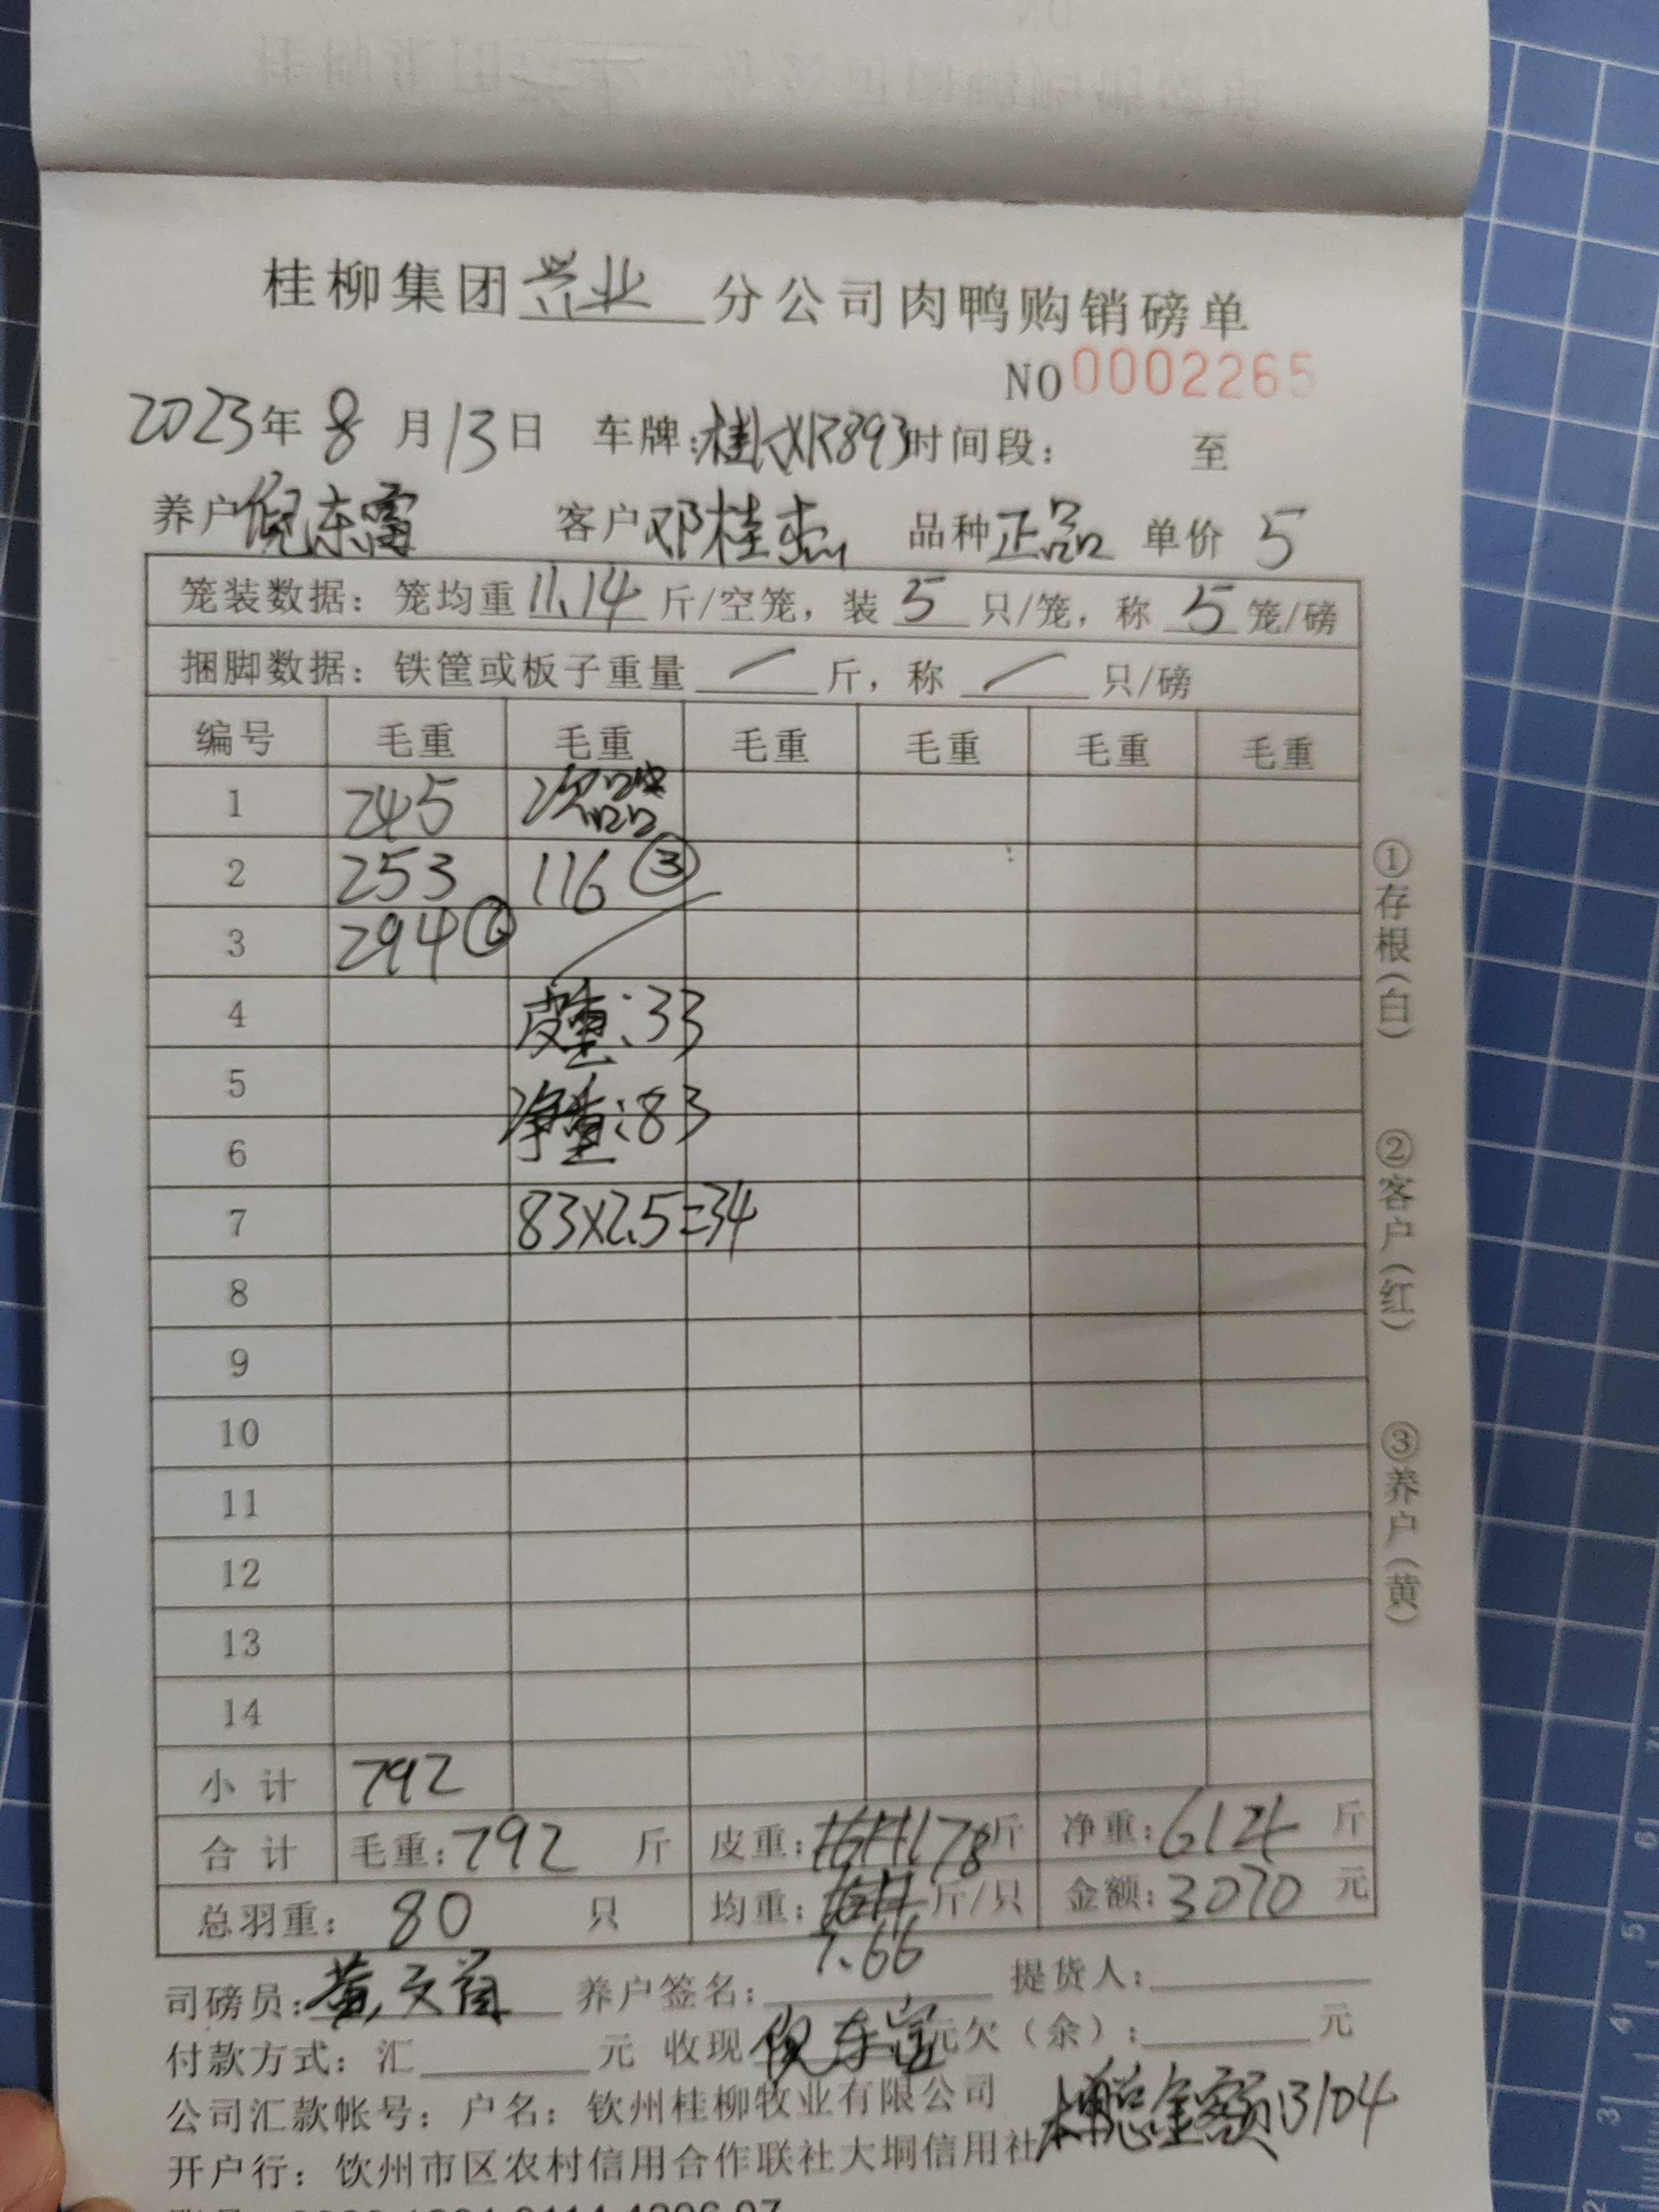 桂柳集团兴业分公司肉鸭购销磅单
NO0002265
2023年8月13日 车牌:桂JXR893时间段: 至
养户倪东富 客户邓桂杰 品种正品 单价 5
笼装数据: 笼均重11.14斤/空笼, 装5只/笼, 称5笼/磅
捆脚数据: 铁筐或板子重量/斤, 称/只/磅
编号 毛重 毛重 毛重 毛重 毛重 毛重
1 245 次品
2 253 116③
3 294⑥
4 皮重:33
5 净重:83
6
7 83×2.5=34
8
9
10
11
12
13
14
小计 792
合计 毛重:792 斤 皮重:178斤 净重:614 斤
总羽重: 80 只 均重: 斤/只 金额:3070 元
7.66
司磅员:黄文 养户签名: 提货人:
付款方式: 汇 元 收现 倪东富 元欠(余): 元
公司汇款帐号: 户名: 钦州桂柳牧业有限公司
总金额:3104
开户行: 钦州市区农村信用合作联社大垌信用社
①存根(白)
②客户(红)
③养户(黄)